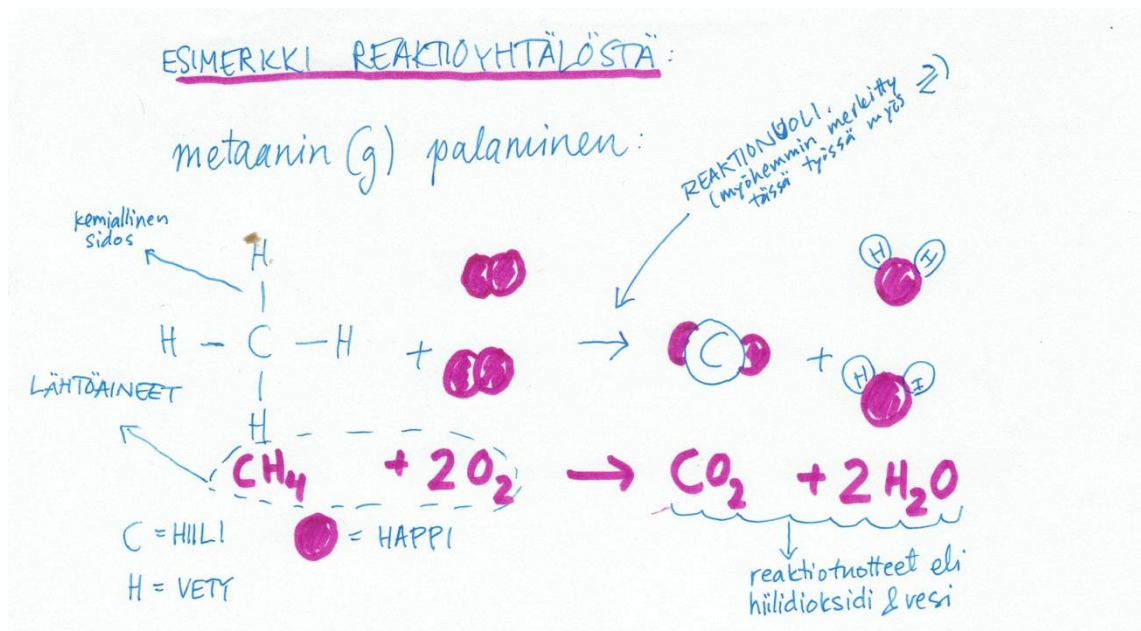 ESIMERKKI REAKTIOYHTÄLÖSTÄ:
metaanin (g) palaminen:
REAKTIONUOLI.
(myöhemmin merkitty
tässä työssä myös ⇄)
kemiallinen
sidos
H
H - C - H
+
→
C
+
H H
H H
H
LÄHTÖAINEET
CH₄ + 2O₂ → CO₂ + 2H₂O
C = HIILI
= HAPPI
H = VETY
reaktiotuotteet eli
hiilidioksidi & vesi